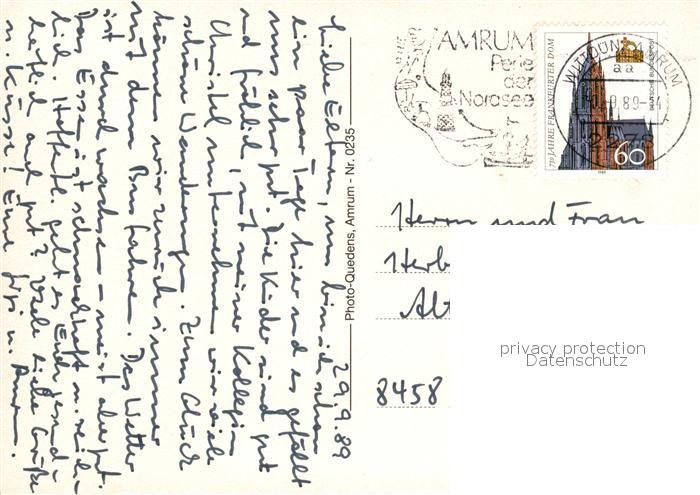 29.9.89
Liebe Eltern, nun bin ich schon
ein paar Tage hier und es gefällt
mir sehr gut. Die Kinder sind gut
und fröhlich, mit meiner Kollegin
Christel unternehmen wir viele
schöne Wanderungen. Zum Glück
können wir zurück immer
mit dem Bus fahren. Das Wetter
ist durchwachsen – meist aber gut.
Das Essen ist schmackhaft u. reich-
lich. Hoffentl. geht es Euch gesund-
heitlich auch gut? Viele liebe Grüße
u. Küsse! Eure
Photo-Quedens, Amrum - Nr. 0235
AMRUM
Perle
der
Nordsee
750 JAHRE FRANKFURTER DOM
DEUTSCHE BUNDESPOST
60
1989
WITTDÜN, AMRUM
aa
89
2278
Herrn und Frau
Herb
Alt
8458
privacy protection
Datenschutz